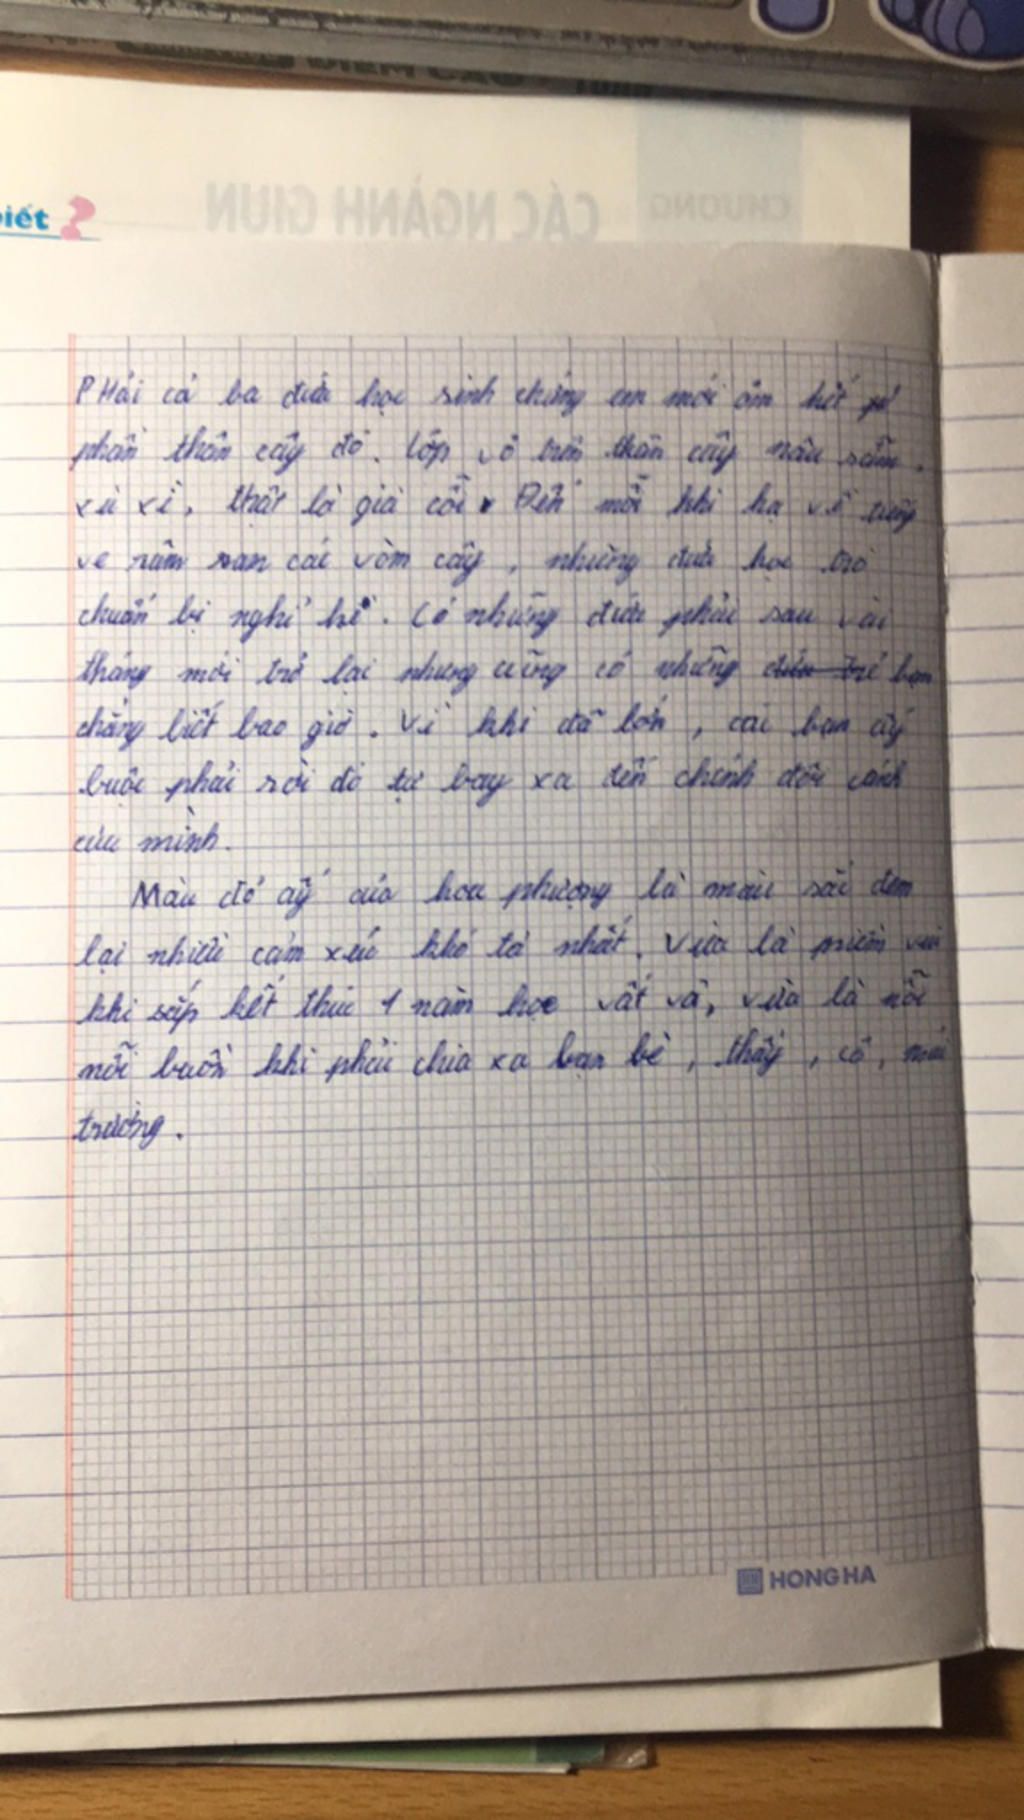 iết ?
CÁC NGÀNH GIUN
CHƯƠNG
PHải cả ba đứa học sinh chúng em mới ôm hết
phần thân cây đó. Lớp vỏ trên thân cây nâu sẫm.
xù xì, thật là già cỗi. Đến mỗi khi hạ về tiếng
ve râm ran cái vòm cây, những đứa học trò
chuẩn bị nghỉ hè. Có những đứa phải sau vài
tháng mới trở lại nhưng cũng có những bạn
chẳng biết bao giờ. Vì khi đã lớn, các bạn ấy
buộc phải rời đó tự bay xa đến chính đôi cánh
của mình.
Màu đỏ ấy của hoa phượng là màu sắc đem
lại nhiều cảm xúc khó tả nhất. Vừa là niềm vui
khi sắp kết thúc 1 năm học vất vả, vừa là nỗi
nỗi buồn khi phải chia xa bạn bè, thầy, cô, mái
trường.
HONG HA